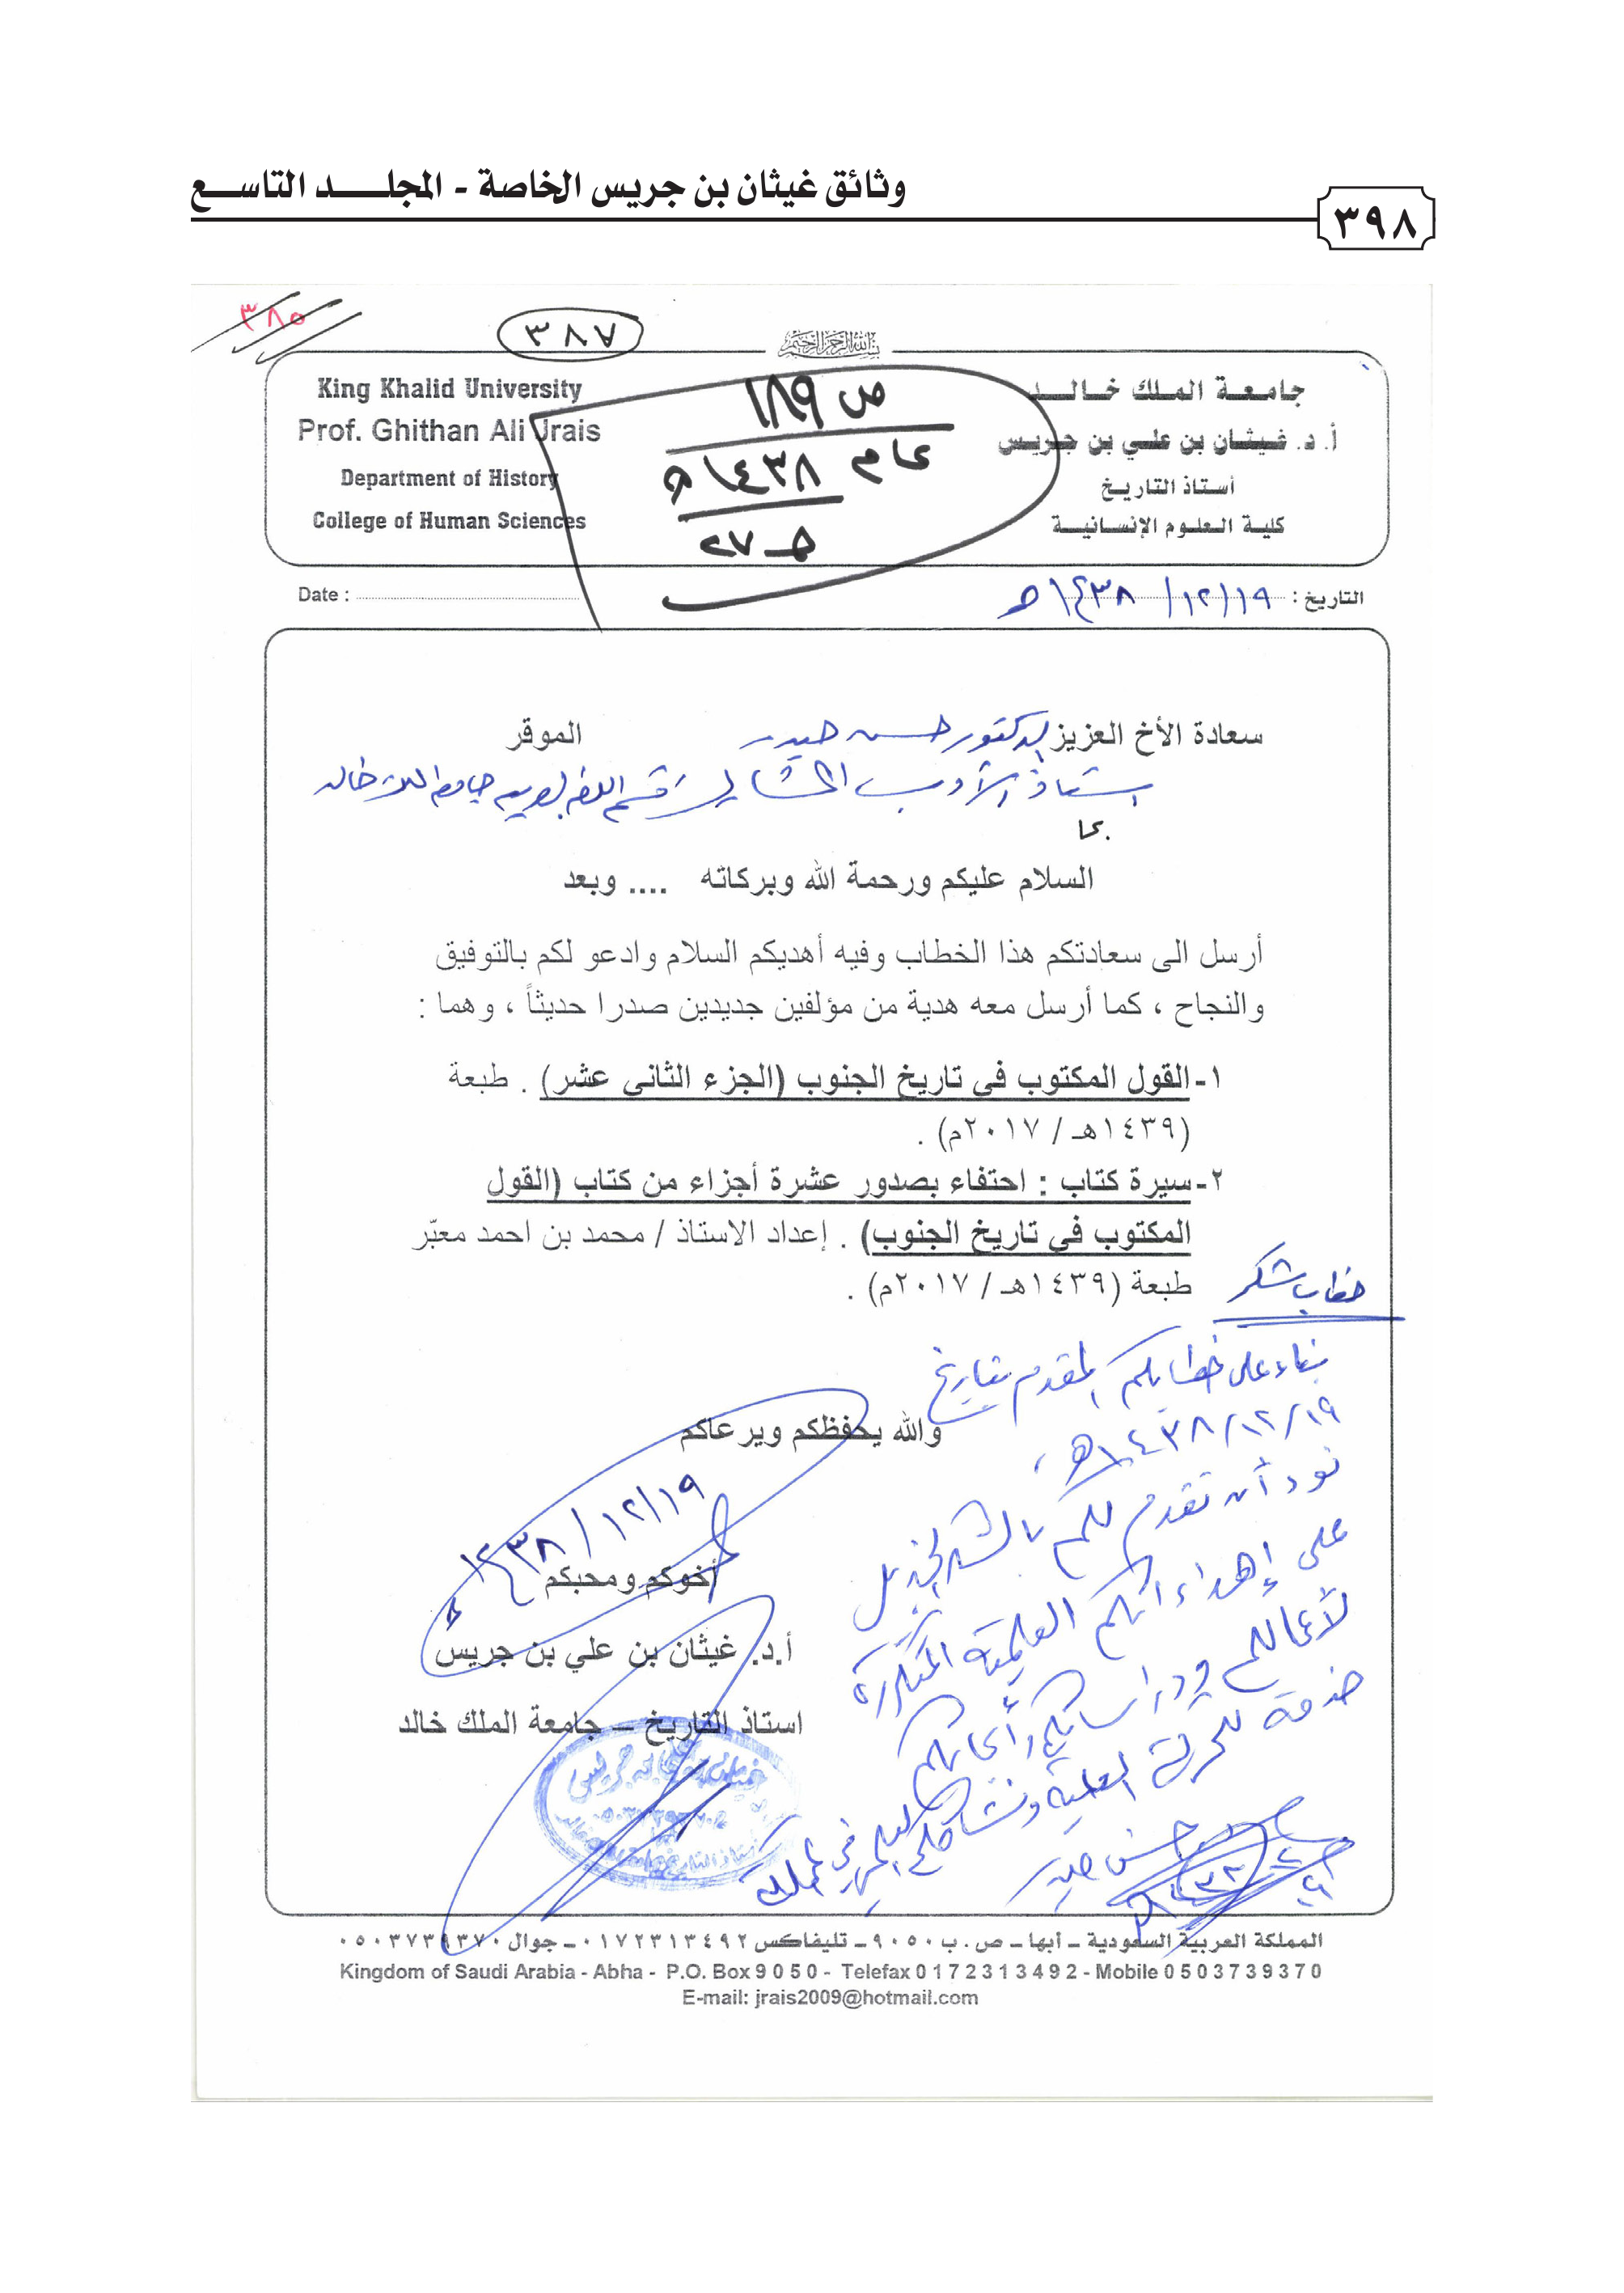 وثائق غيثان بن جريس الخاصة - المجلـــد التاســـع
٣٩٨
٣٨٥
٣٨٧
بسم الله الرحمن الرحيم
King Khalid University
Prof. Ghithan Ali Jrais
Department of History
College of Human Sciences
ص ١٨٩
عام ١٤٣٨ هـ
حـ ٢٧
جامـعـة الملك خـالـد
أ. د. غـيـثـان بن علـي بن جريس
أستاذ التاريـخ
كليـة العـلـوم الإنسـانيـة
Date :
التاريخ : ١٩/ ١٢/ ١٤٣٨ هـ
سعادة الأخ العزيز الدكتور حسن حيدر الموقر
استاذ الأدب قسم اللغة العربية جامعة الملك خالد
السلام عليكم ورحمة الله وبركاته .... وبعد
أرسل الى سعادتكم هذا الخطاب وفيه أهديكم السلام وادعو لكم بالتوفيق
والنجاح ، كما أرسل معه هدية من مؤلفين جديدين صدرا حديثاً ، وهما :
١- القول المكتوب في تاريخ الجنوب (الجزء الثاني عشر) . طبعة
(١٤٣٩هـ / ٢٠١٧م) .
٢- سيرة كتاب : احتفاء بصدور عشرة أجزاء من كتاب (القول
المكتوب في تاريخ الجنوب) . إعداد الاستاذ / محمد بن احمد معبّر
طبعة (١٤٣٩هـ / ٢٠١٧م) .
والله يحفظكم ويرعاكم
١٩/ ١٢/ ١٤٣٨
أخوكم ومحبكم
أ.د. غيثان بن علي بن جريس
استاذ التاريخ – جامعة الملك خالد
خطاب شكر
بناء على خطابكم المقدم بتاريخ
١٩/ ١٢/ ١٤٣٨هـ ،
نود أن نقدم لكم بالشكر الجزيل
على إهداءاتكم العلمية المتكررة
لأعمالكم ودراساتكم وأبحاثكم
خدمة للحركة العلمية في المملكة
حسن حيدر
المملكة العربية السعودية ـ أبها ـ ص . ب ٩٠٥٠ ـ تليفاكس ٠١٧٢٣١٣٤٩٢ ـ جوال ٠٥٠٣٧٣٩٣٧٠
Kingdom of Saudi Arabia - Abha - P.O. Box 9 0 5 0 - Telefax 0 1 7 2 3 1 3 4 9 2 - Mobile 0 5 0 3 7 3 9 3 7 0
E-mail: jrais2009@hotmail.com